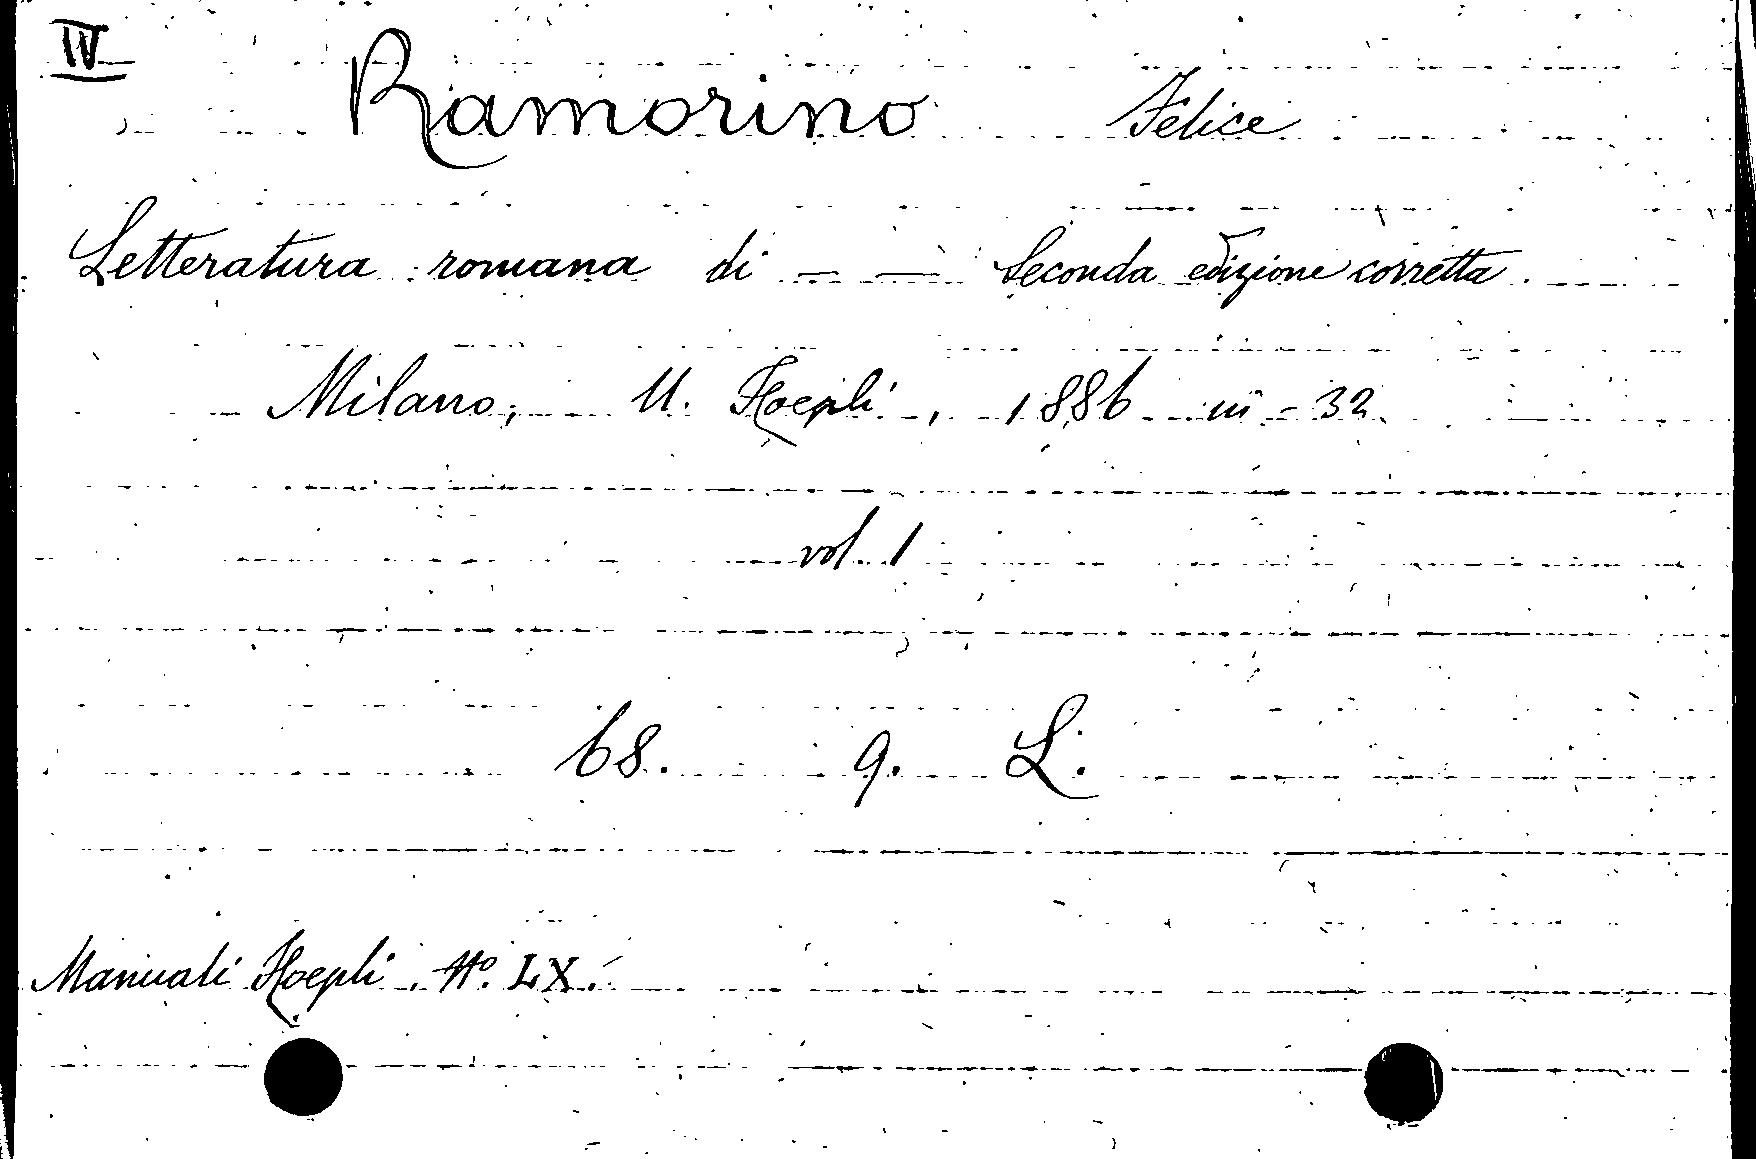 IV
Ramorino Felice
Letteratura romana di — — Seconda edizione corretta.
Milano, U. Hoepli, 1886 in-32.
vol. 1
68. 9. L.
Manuali Hoepli. Nº. LX.